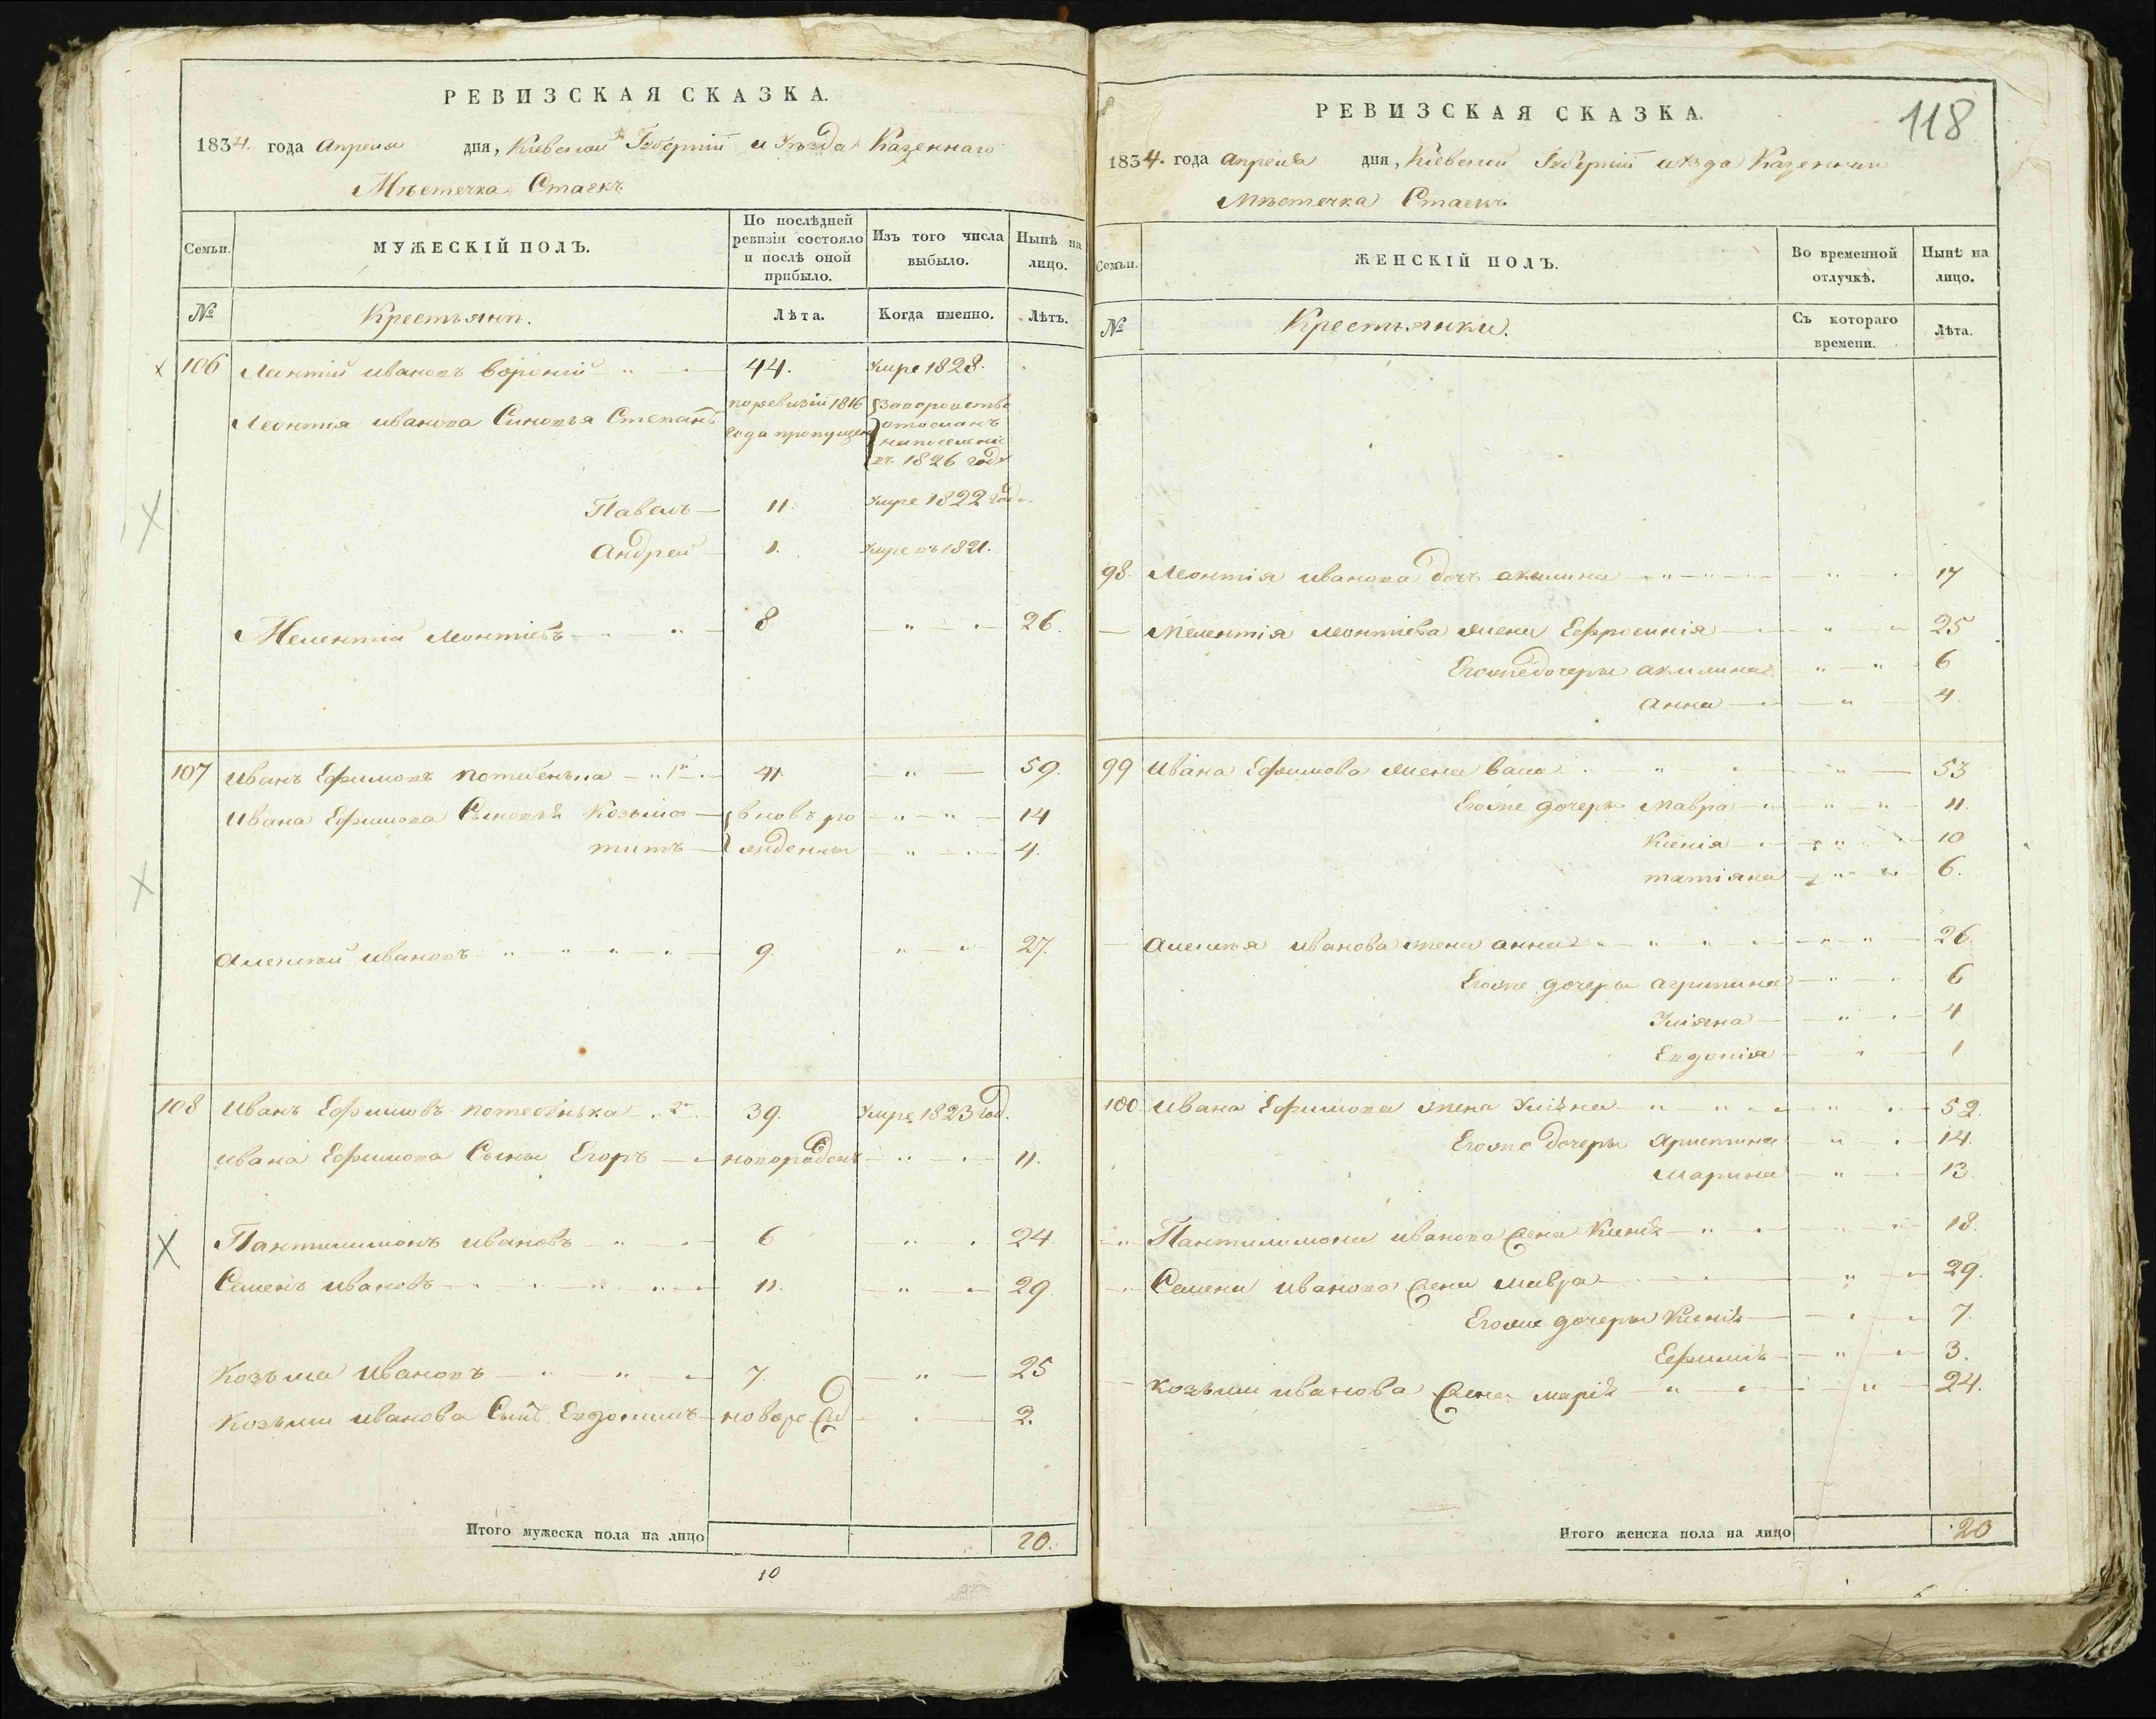 РЕВИЗСКАЯ СКАЗКА.
1834. года Апреля дня, Киевской Губернiи и Уѣзда Казеннаго
Мѣстечка Стаекъ
Семьи. МУЖЕСКIЙ ПОЛЪ. По послѣдней ревизiи состояло и послѣ оной прибыло. Изъ того числа выбыло. Нынѣ на лицо.
№ Крестьянъ. Лѣта. Когда именно. Лѣтъ.
106 Леонтiй Ивановъ 44. Умре 1828.
Леонтiя Иванова Синовья Степанъ по ревизiи 1816 года пропущен за воровство отосланъ на поселенiе въ 1826 году
Павелъ 11. Умре 1822 года
Андрей 1. Умре въ 1821.
Мелентiй Леонтiевъ 8 26.
107 Иванъ Ефимовъ Потебенька 1й 41. 59.
Ивана Ефимова Сыновья Козьма вновь ро 14
титъ жденны 4.
Алексей Ивановъ 9. 27.
108 Иванъ Ефимовъ Потебенька 2й 39. Умре 1823 год.
Ивана Ефимова Сыны Егоръ новорожденъ 11.
Пантилимонъ Ивановъ 6 24
Семенъ Ивановъ 11. 29
Козьма Ивановъ 7. 25
Козьми Иванова Сынъ Евдокимъ новорож 2.
Итого мужеска пола на лицо 10.
10
118
РЕВИЗСКАЯ СКАЗКА.
1834. года Апреля дня, Кiевской Губернiи уѣзда Казенного
Мѣстечка Стаекъ
Семьи. ЖЕНСКIЙ ПОЛЪ. Во временной отлучкѣ. Нынѣ на лицо.
№ Крестьянки. Съ котораго времени. Лѣта.
98. Леонтiя Иванова дочь акилина 17
Мелентiя Леонтiева жена Ефросинiя 25
Егожедочеры акилина 6
анна 4
99 Ивана Ефимова жена 53
Егоже дочеры Мавра 11.
Ксенiя 10
татiяна 6.
Алексея Иванова жена анна 26
Егоже дочеры агрипина 6
Улiяна 4
Евдокiя 1
100 Ивана Ефимова жена Улiяна 52.
Егоже дочеры Христина 14.
Марина 13
Пантилимона Иванова жена Ксенiя 18.
Семена Иванова жена Мавра 29.
Егоже дочеры Ксенiя 7.
Ефимiя 3.
Козьми Иванова жена Марiя 24.
Итого женска пола на лицо 20